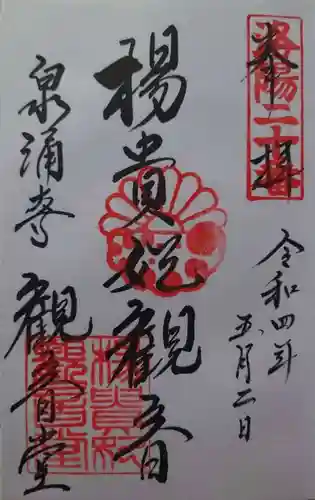 奉拝
洛陽二十番
令和四年
五月二日
楊貴妃観音
泉涌寺
観音堂